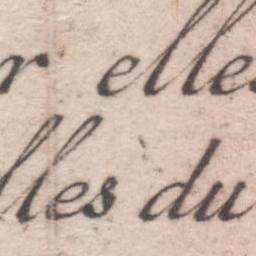 r elles
lles du